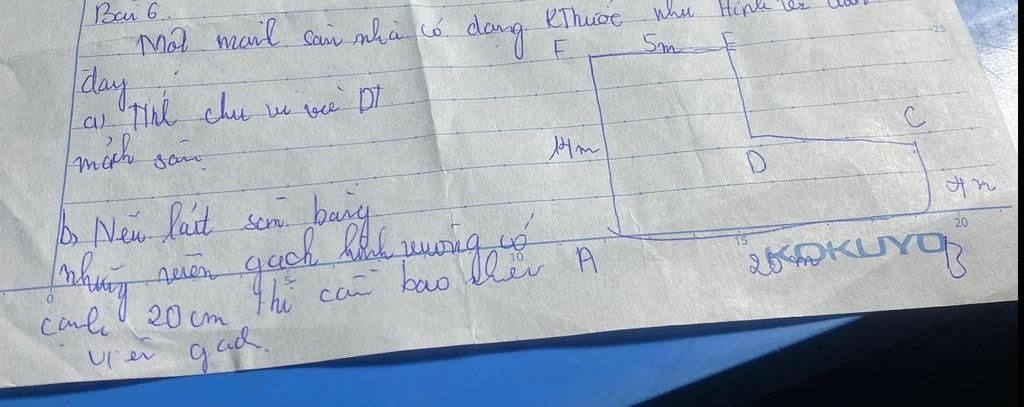 Bài 6.
Một mảnh sân nhà có dạng KThước như Hình
F 5m E
đây
a) Tính chu vi và DT
mảnh sân.
C
D
4m
b) Nếu lát sân bằng
những viên gạch hình vuông có
A 20m B
cạnh 20 cm thì cần bao nhiêu
viên gạch.
KOKUYO
0 5 10 15 20 25